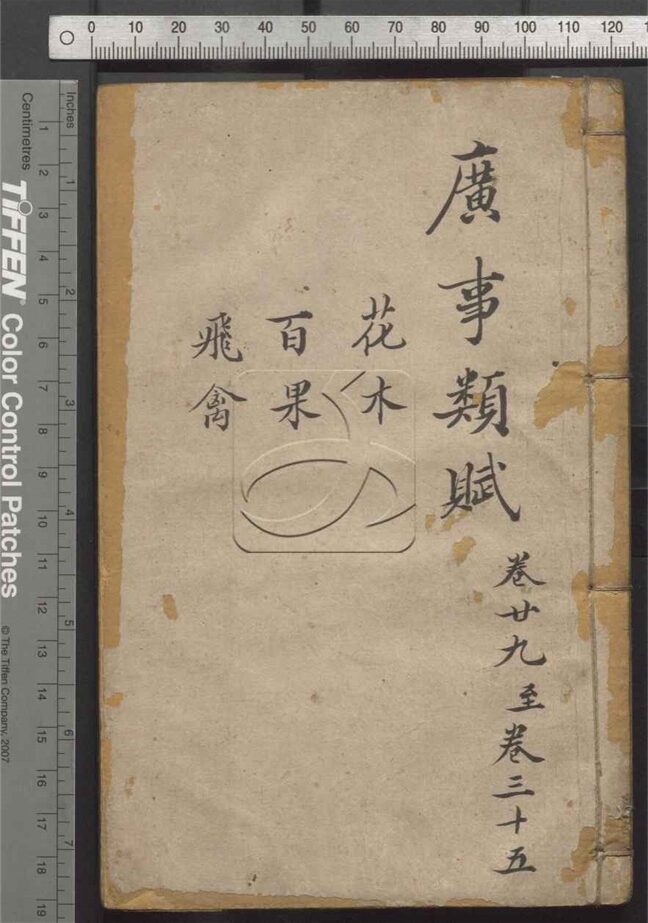 0 10 20 30 40 50 60 70 80 90 100 110 120
廣事類賦
卷廿九至卷三十五
花木
百果
飛禽
Inches
1 2 3 4 5 6 7
Centimetres
1 2 3 4 5 6 7 8 9 10 11 12 13 14 15 16 17 18 19
TIFFEN® Color Control Patches
© The Tiffen Company, 2007